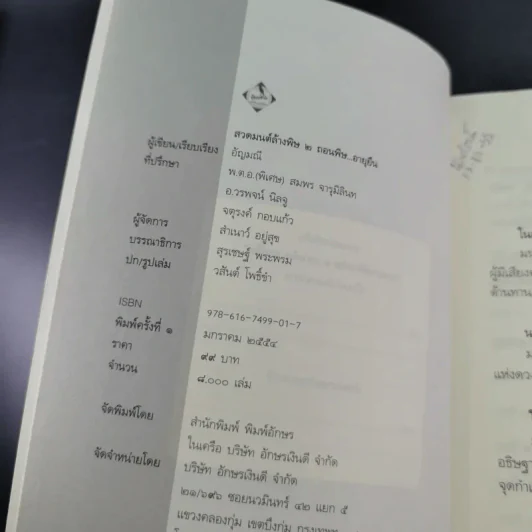 สวดมนต์ล้างพิษ ๒ ถอนพิษ...อายุยืน
ผู้เขียน/เรียบเรียง อัญมณี
ที่ปรึกษา พ.ต.อ.(พิเศษ) สมพร จารุมิลินท
อ.วรพจน์ นิลจู
ผู้จัดการ จตุรงค์ กอบแก้ว
บรรณาธิการ สำเนาว์ อยู่สุข
ปก/รูปเล่ม สุรเชษฐ์ พระพรม
วสันต์ โพธิ์ขำ
ISBN 978-616-7499-01-7
พิมพ์ครั้งที่ ๑ มกราคม ๒๕๕๔
ราคา ๙๙ บาท
จำนวน ๘,๐๐๐ เล่ม
จัดพิมพ์โดย สำนักพิมพ์ พิมพ์อักษร
ในเครือ บริษัท อักษรเงินดี จำกัด
จัดจำหน่ายโดย บริษัท อักษรเงินดี จำกัด
๒๑/๖๙๖ ซอยนวมินทร์ ๔๒ แยก ๕
แขวงคลองกุ่ม เขตบึงกุ่ม กรุงเทพฯ
ผู้มีเสียง
ต้านทาน
แห่งดวง
อธิษฐา
จุดกำเ